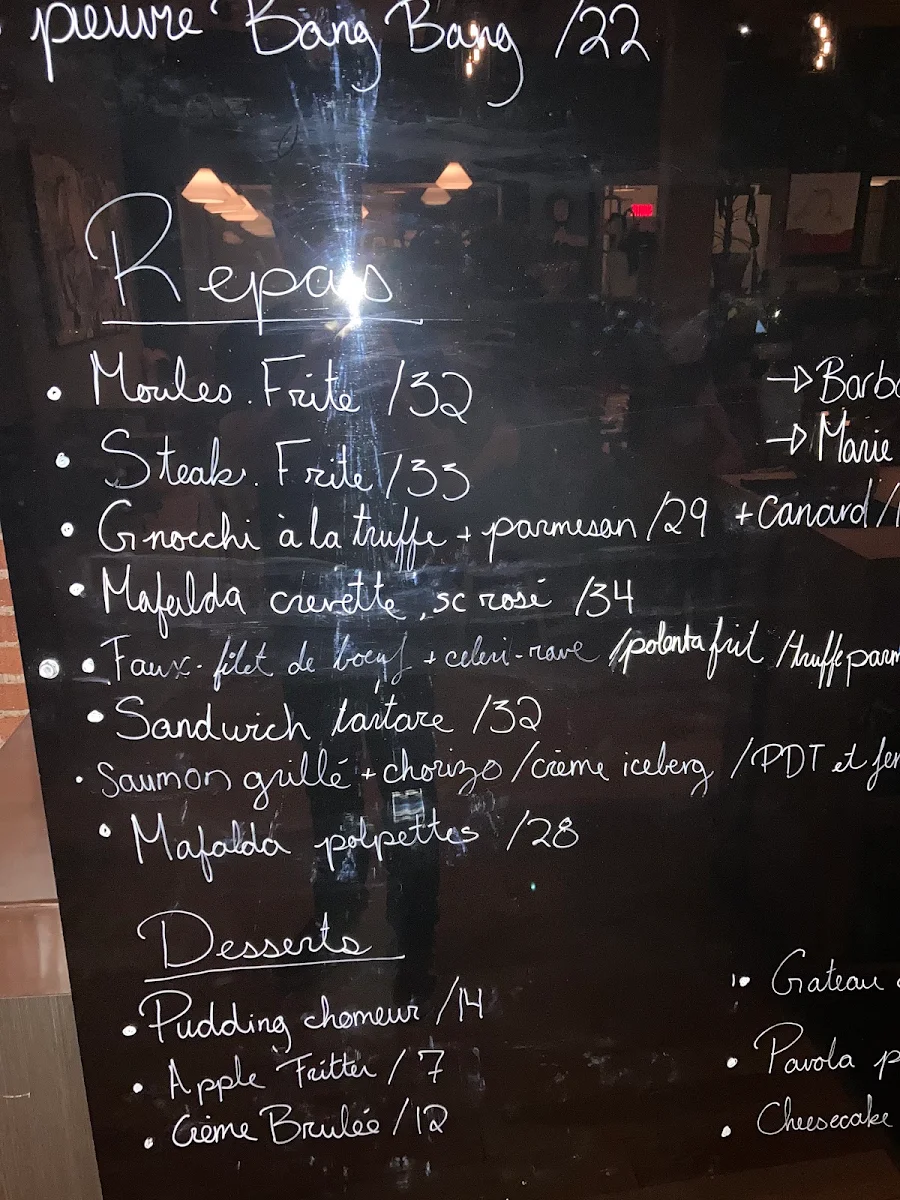 pieuvre Bang Bang /22
Repas
• Moules. Frite /32
→ Barb
• Steak. Frite /33
→ Marie
• Gnocchi à la truffe + parmesan /29 + Canard /
• Mafalda crevette, sc rosé /34
• Faux-filet de boeuf + celeri-rave /polenta frit /truffe parm
• Sandwich tartare /32
• Saumon grillé + chorizo /crème iceberg /PDT et fen
• Mafalda polpettes /28
Desserts
• Pudding chomeur /14
• Apple Fritter /7
• Crème Brulée /12
• Gateau
• Pavola p
• Cheesecake